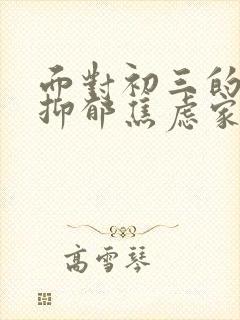 而對初三的
抑郁焦慮家
高雪琴